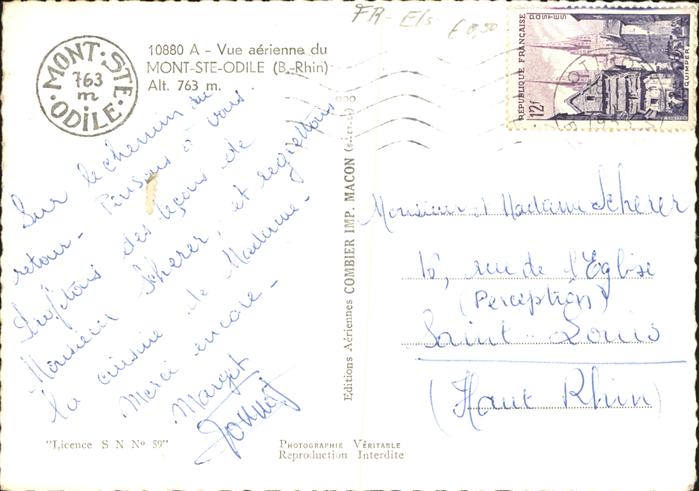 FR-Els
€ 0,50
RÉPUBLIQUE FRANÇAISE
POSTES
12f
QUIMPER
MONT-STE-ODILE
763
m
10880 A - Vue aérienne du
MONT-STE-ODILE (B.-Rhin)
Alt. 763 m.
Sur le chemin du
retour - Pensons à vous
Profitons des leçons de
Monsieur Scherer, et regrettons
la cuisine de Madame -
Merci encore -
Margot
Editions Aériennes COMBIER IMP. MACON
Monsieur et Madame Scherer
10, rue de l'Eglise
(Perception)
Saint-Louis
(Haut Rhin)
"Licence S N Nº 59"
PHOTOGRAPHIE VÉRITABLE
Reproduction Interdite